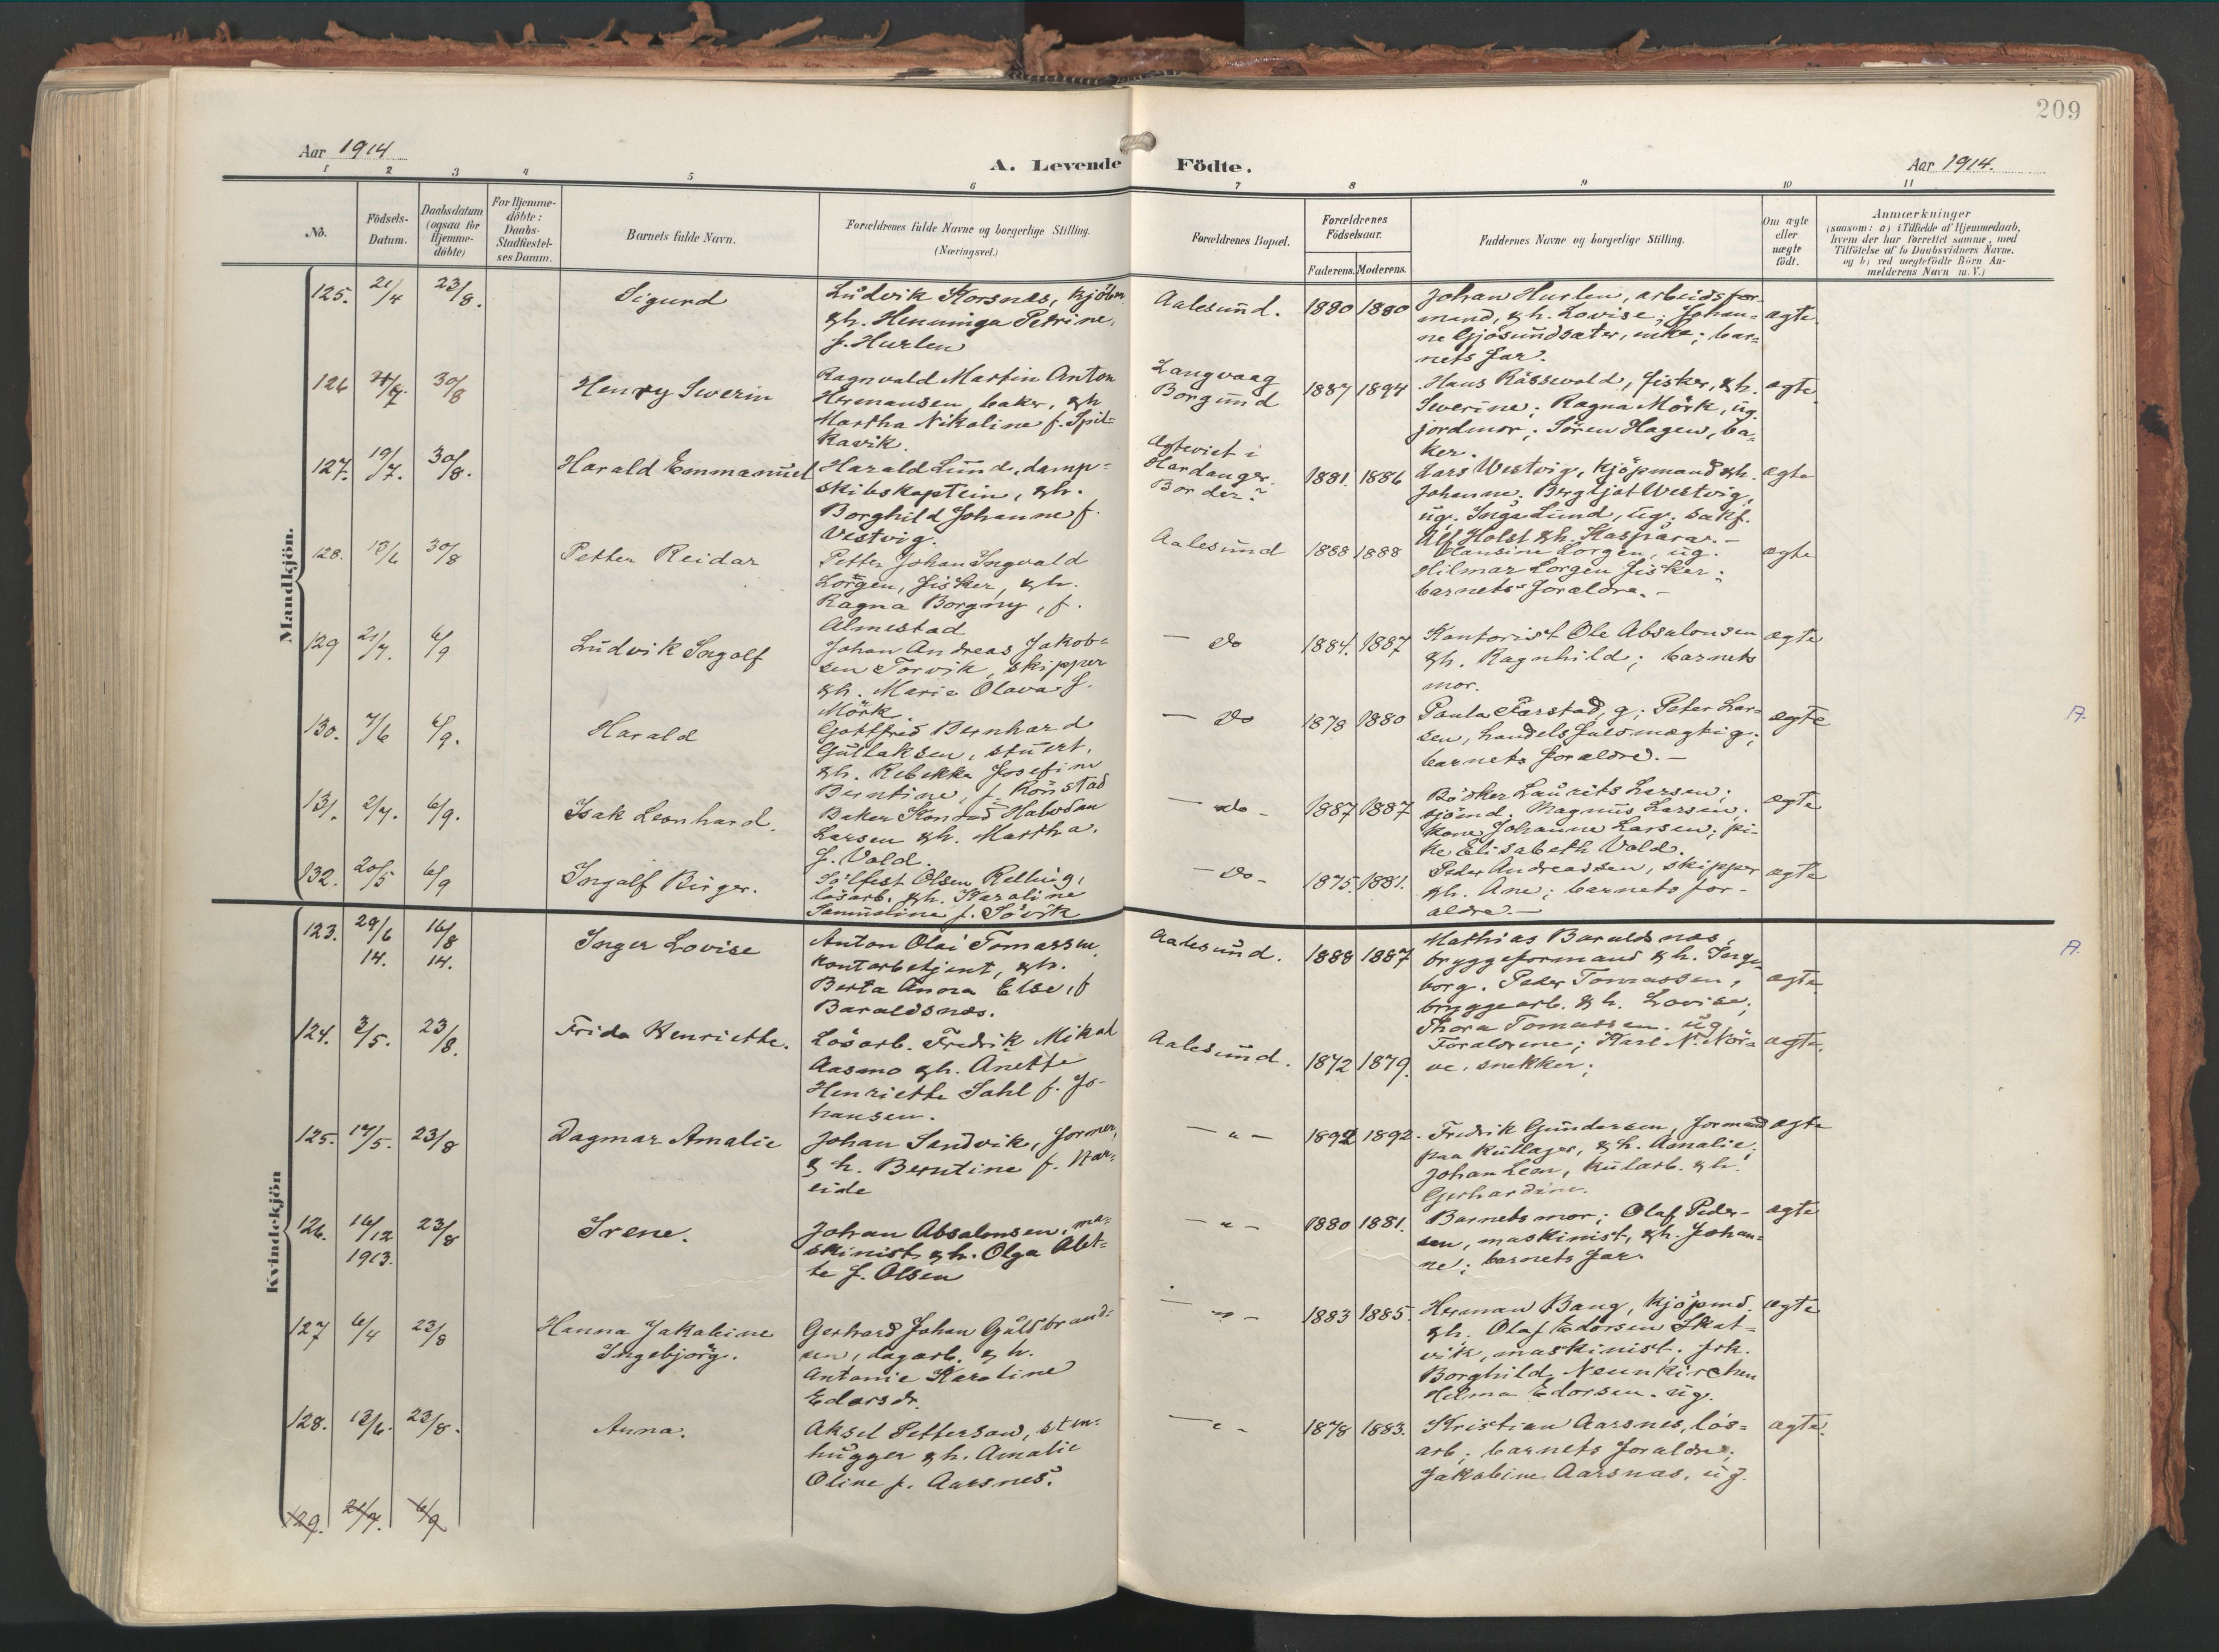 209
Aar 1914
A. Levende Födte.
Aar 1914.
1 2 3 4 5 6 7 8 9 10 11
No.
Födsels-
Datum.
Daabsdatum
(ogsaa for
Hjemme-
döbte)
For Hjemme-
döbte:
Daabs-
Stadfæstel-
ses Datum.
Barnets fulde Navn.
Forældrenes fulde Navne og borgerlige Stilling.
(Næringsvei.)
Forældrenes Bopæl.
Forældrenes
Födselsaar.
Faderens. Moderens.
Faddernes Navne og borgerlige Stilling.
Om ægte
eller
uægte
födt.
Anmærkninger
(saasom: a) i Tilfælde af Hjemmedaab,
hvem der har forrettet samme, med
Tilföielse af to Daabsvidners Navne.
og b) ved uægtefödte Börn An-
melderens Navn m. V.)
Mandkjön.
125. 21/4 23/8. Sigurd
Ludvik Korsnæs, kjöbm.
&h. Henninga Petrine,
f. Hurlen
Aalesund. 1880 1880
Johan Hurlen, arbeidsfor-
mand, &h. Lovise; Johan-
ne Gjösundsæter, enke; bar-
nets far.
ægte.
126 30/8 Henry Severin
Ragnvald Martin Anton
Hermansen, baker, &h
Martha Nikoline f. Spil-
kavik.
Langvaag
Borgund
1887 1894
Hans Rössevold, fisker, &h.
Severine; Ragna Mörk, ug.
jordmor; Sören Hagen, ba-
ker.
ægte.
127. 19/7. 30/8. Harald Emmanuel
Harald Lund, damp-
skibskaptein, &h.
Borghild Johanne f.
Vestvig.
Agteviet i
Hardanger.
1881. 1886
Lars Westvig, kjöpmand &h.
Johanne. Bergljot Westvig,
ug. Inga Lund, ug. sakf.
Alf Holst &h. Kaspara. -
ægte
128. 13/6 30/8 Petter Reidar
Petter Johan Ingvald
Lorgen, fisker, &h.
Ragna Borgny, f.
Almestad
Aalesund 1888 1888
Hansine Lorgen, ug.
Hilmar Lorgen fisker;
barnets forældre. -
ægte
129 21/7. 6/9 Ludvik Ingolf
Johan Andreas Jakob-
sen Torvik, skipper
&h. Marie Olava f.
Mörk.
— do 1884. 1887
Kontorist Ole Absalonsen
&h. Ragnhild; barnets
mor.
ægte
130. 7/6 6/9. Harald
Gottfred Bernhard
Gullaksen, stuert,
&h. Rebekka Josefine
Berntine, f. Rönstad
— do 1878 1880
Paula Farstad, g; Peter Lar-
sen, handelsfuldmægtig;
barnets forældre. -
ægte
A.
131. 2/7. 6/9. Isak Leonhard.
Baker Konrad Halvdan
Larsen &h. Martha,
f. Vold.
— do - 1887 1887
Bödker Laurits Larsen;
sjömd. Magnus Larsen;
kone Johanne Larsen; pi-
ke Elisabeth Vold.
ægte
132. 20/5 6/9 Ingolf Birger.
Sölfest Olsen Relling,
lösarb. &h. Karoline
Samueline f. Sövik
— do - 1875. 1881.
Peder Andreassen, skipper
&h. Ane; barnets for-
ældre. -
ægte
Kvindekjön
123. 29/6 14. 16/8 14. Inger Lovise
Anton Olai Tomassen,
kontorbetjent, &h.
Berta Anna Else, f
Baraldsnes.
Aalesund. 1888 1887
Mathias Baraldsnes,
bryggeformand &h. Inge-
borg. Peder Tomassen,
bryggearb. &h. Lovise;
Thora Tomassen. ug
ægte
A.
124. 3/5. 23/8. Frida Henriette.
Lösarb. Fredrik Mikal
Aasmo &h. Anette
Henriette Dahl f. Jo-
hansen.
Aalesund. 1872 1879.
Forældrene; Karl N. Nör-
ve. snekker;
ægte.
125. 17/5. 23/8 Dagmar Amalie
Johan Sandvik, former,
&h. Berntine f. Kar-
eide
— „ — 1892 1892.
Fredrik Gundersen, formand
paa kullager, &h. Amalie;
Johan Leen, kularb. &h.
Gerhardine.
ægte
126. 16/12 1913. 23/8 Irene.
Johan Absalonsen, ma-
skinist &h. Olga Alet-
te f. Olsen
— „ — 1880 1881.
Barnets mor; Olaf Peder-
sen, maskinist, &h. Johan-
ne; barnets far.
ægte
127 6/4 23/8 Hanna Jakobine
Ingebjörg.
Gerhard Johan Gulbrand-
sen, dagarb. &h.
Antonie Karoline
Edorsdr.
— „ — 1883 1885.
Herman Bang, kjöpmd.
&h. Olaf Edorsen Skot-
vik, maskinist. frk.
Borghild Neunkirchen
Helma Edorsen. ug.
ægte
128. 13/6. 23/8. Anna.
Aksel Petterson, sten-
hugger &h. Amalie
Oline f. Aarsnes.
— „ - 1878 1883.
Kristian Aarsnes, lös-
arb; barnets forældre;
Jakobine Aarsnes, ug.
ægte.
129. 21/7. 6/9